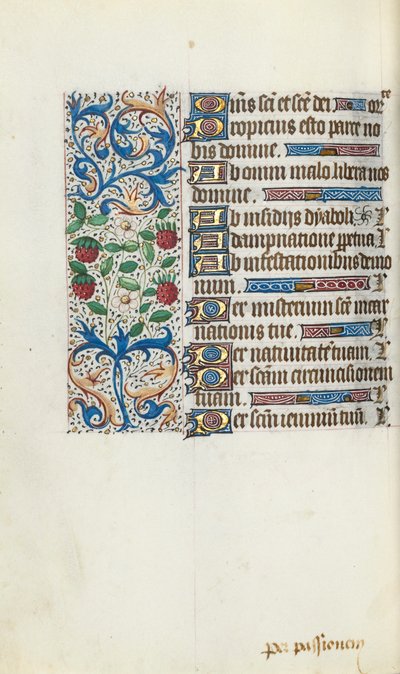 Om̅s sc̅i et sc̅e dei or
Propicius esto parce no
bis domine.
Ab omni malo libera nos
domine.
Ab insidijs dyaboli
A dampnatione perpetua
Ab infestationibus demo
num.
Per misterium sc̅e incar
nationis tue
Per nativitatē tuam.
Per sc̅am circumcisionem
tuam.
Per sc̅m ieiuniū tuū.
per passionem